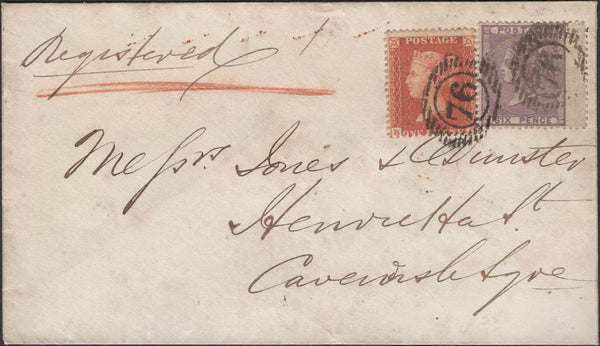 Registered
POSTAGE POSTAGE
76 76
SIX PENCE
Messrs Jones & Dunster
Henrietta St
Cavendish Sqre